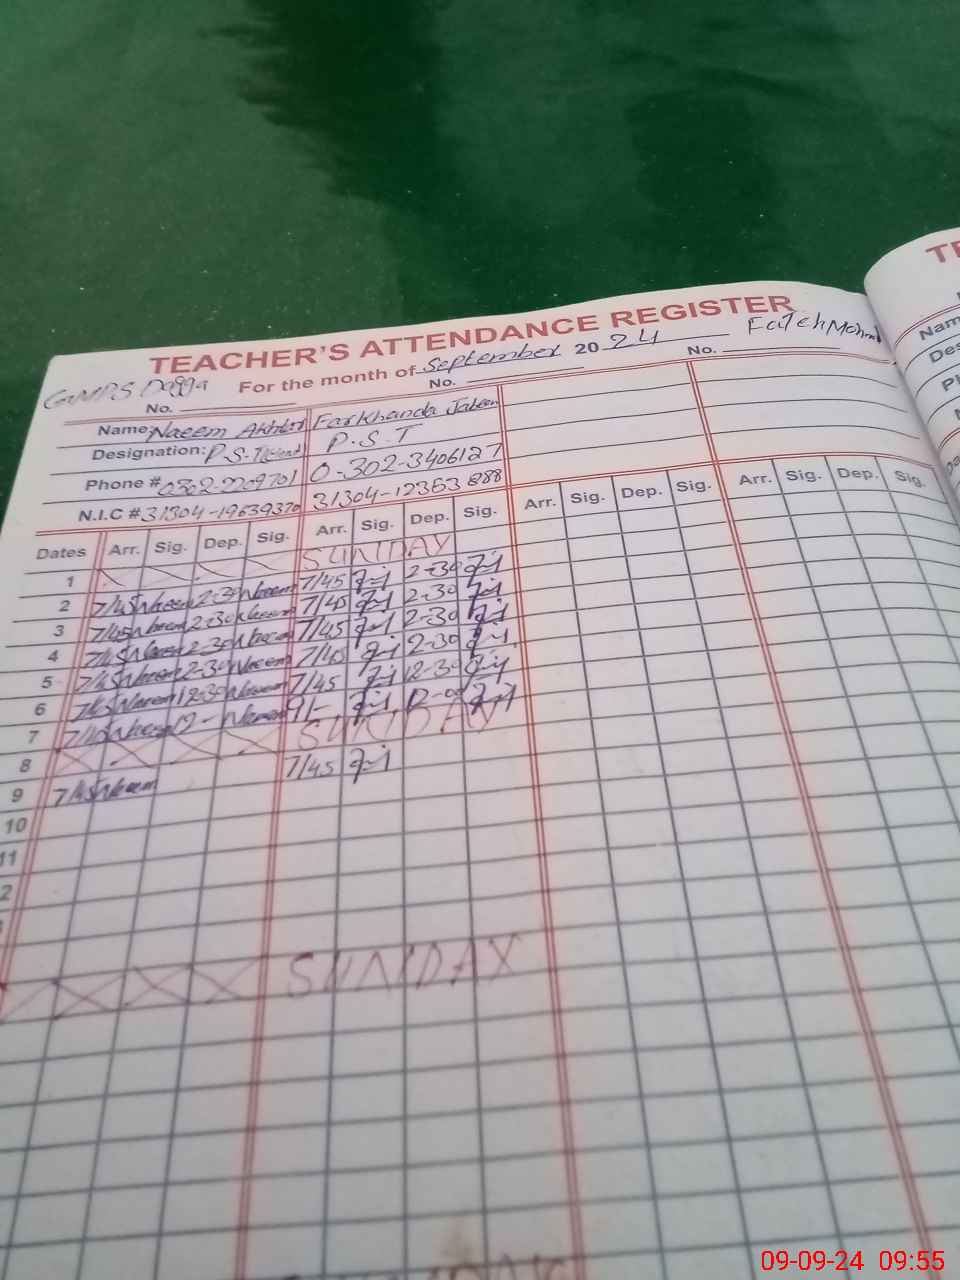 TEACHER'S ATTENDANCE REGISTER
GMPS Dagga For the month of September 20 24 Fateh Mohd
No. No. No.
Name: Naeem Akhtar Farkhanda Jabeen
Designation: P.S.T P.S.T
Phone # 0302-2209701 0-302-3406127
N.I.C # 31304-1963937 31304-12363 888
Dates Arr. Sig. Dep. Sig. Arr. Sig. Dep. Sig. Arr. Sig. Dep. Sig. Arr. Sig. Dep. Sig.
1 SUNDAY
2 7/45 Naeem 2-30 Naeem 7/45 2-30
3 7/45 Naeem 2-30 Naeem 7/45 2-30
4 7/45 Naeem 2-30 Naeem 7/45 2-30
5 7/45 Naeem 2-30 Naeem 7/45 2-30
6 7/45 Naeem 12-30 Naeem 7/45 12-30
7 7/45 Naeem 12- Naeem 9/- 12-00
8 SUNDAY
9 7/45 Naeem 7/45
10
11
2
SUNDAY
TE
Nam
Des
P
09-09-24 09:55